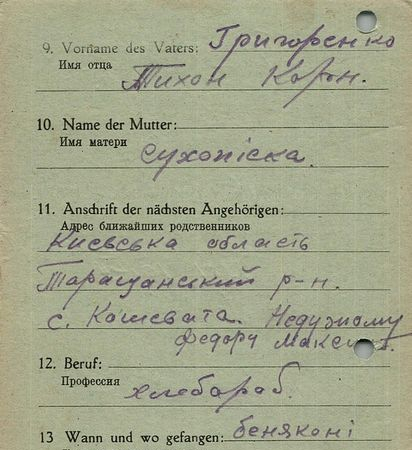 9. Vorname des Vaters: Григоренко
Имя отца
Тихон Корон.
10. Name der Mutter:
Имя матери
Сухопіска.
11. Anschrift der nächsten Angehörigen:
Адрес ближайших родственников
Киевська область
Таращанський р-н.
с. Кошевата. Недужому
Федору Максим.
12. Beruf:
Профессия
хлебораб.
13 Wann und wo gefangen: беняконі